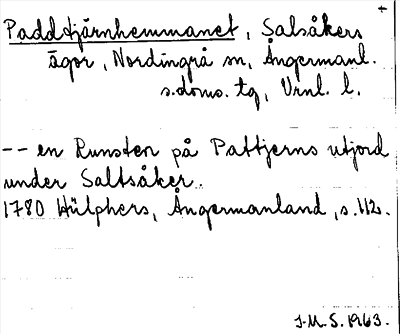 +
Paddtjärnhemmanet, Salsåkers
ägor, Nordingrå sn, Ångermanl.
s.doms. tg, Vrnl. l.
-- en Runsten på Pattjerns utjord
under Saltsåker.
1780 Hülphers, Ångermanland, s.112.
J.M.S. 1963.